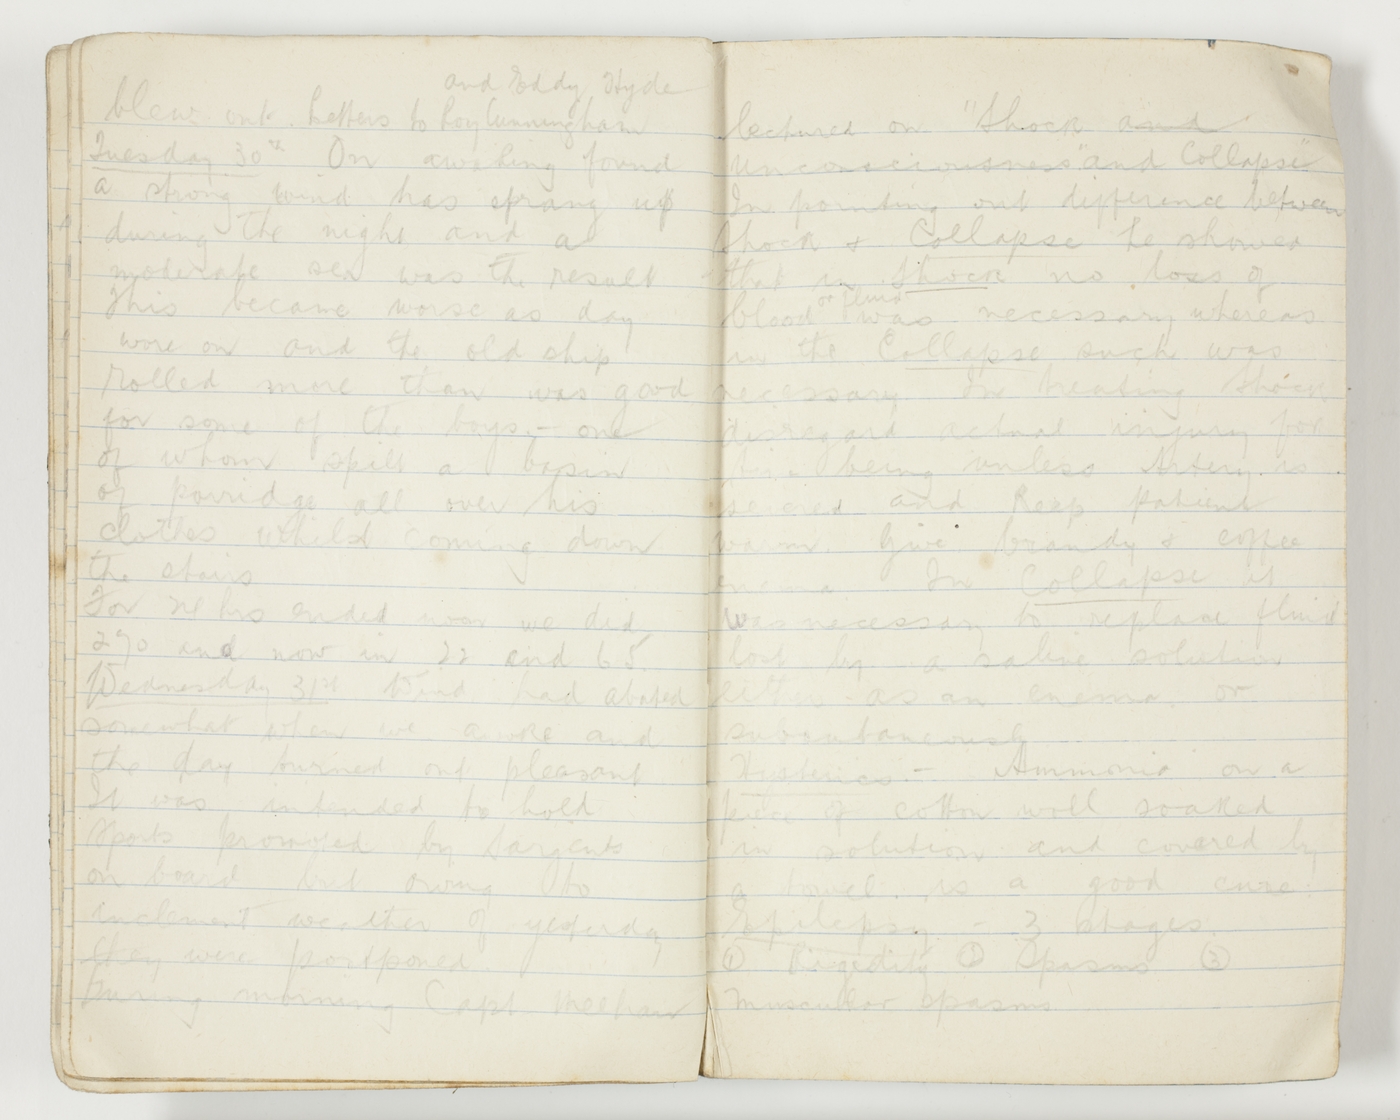 and Eddy Hyde
blew out. Letters to Roy Cunningham
Tuesday 30th On awaking found
a strong wind has sprang up
during the night and a
moderate sea was the result
This became worse as day
wore on and the old ship
rolled more than was good
for some of the boys, - one
of whom spilt a basin
of porridge all over his
clothes whilst coming down
the stairs
For 24 hrs ended noon we did
270 and now in 22 and 65.
Wednesday 31st Wind had abated
somewhat when we awoke and
the day turned out pleasant
It was intended to hold
sports promoted by Sargents
on board but owing to
inclement weather of yesterday
they were postponed.
During morning Capt Meehan
lectured on "Shock and
unconsciousness" and Collapse"
In pointing out difference between
Shock & Collapse he showed
that in Shock no loss of
blood or fluid was necessary whereas
in the Collapse such was
necessary. In treating Shock
disregard actual injury for
time being unless Artery is
severed and Keep patient
warm. Give brandy & coffee
enema. In Collapse it
was necessary to replace fluid
lost by a saline solution
either as an enema or
subcutaneously
Hysterics - Ammonia on a
piece of cotton woll soaked
in solution and covered by
a towel is a good cure.
Epilepsy - 3 stages.
① Rigidity ② Spasms ③
muscular spasms